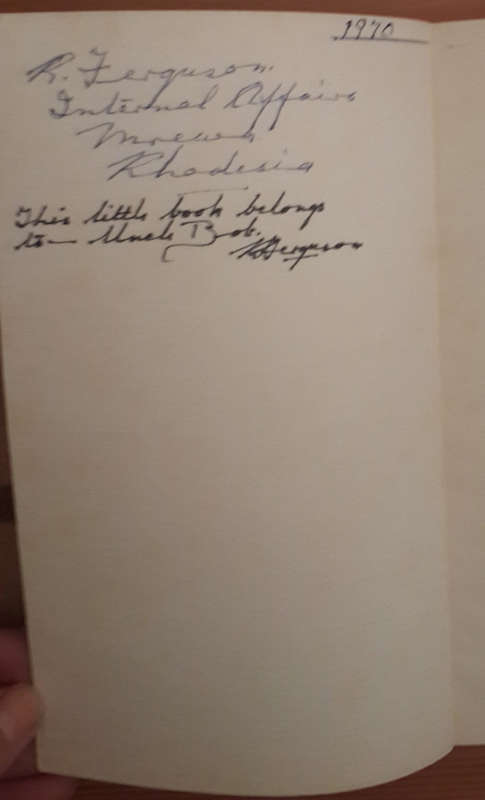 1970
R. Ferguson.
Internal Affairs
Mrewa
Rhodesia
This little book belongs
to Uncle Bob.
R Ferguson